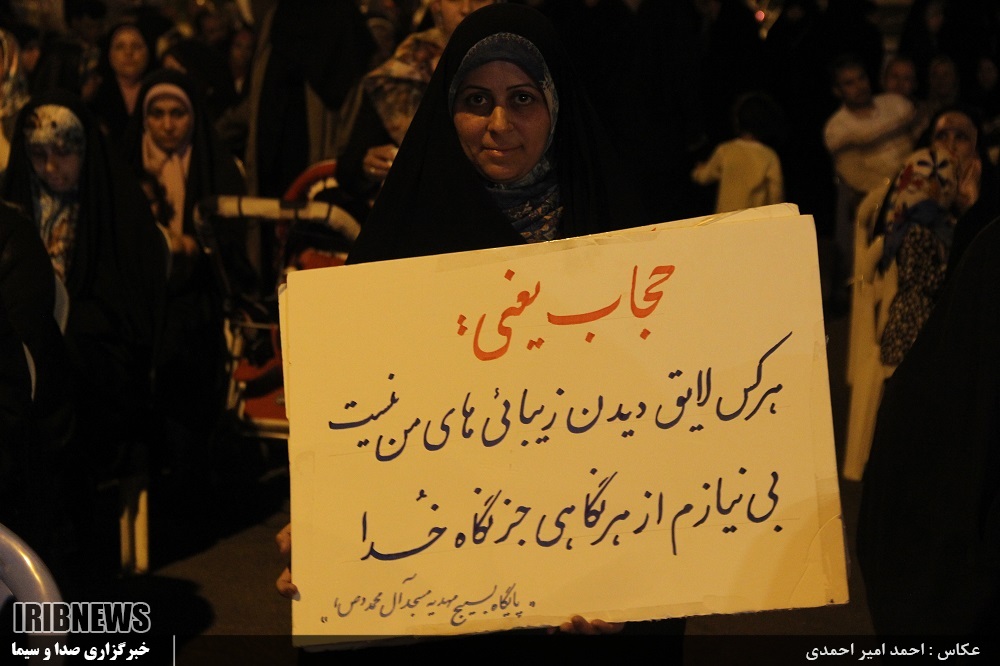 حجاب یعنی:
هر کس لایق دیدن زیبائی های من نیست
بی نیازم از هر نگاهی جز نگاه خُدا
پایگاه بسیج مهدیه مسجد آل محمد (ص)
IRIBNEWS
خبرگزاری صدا و سیما
عکاس : احمد امیر احمدی